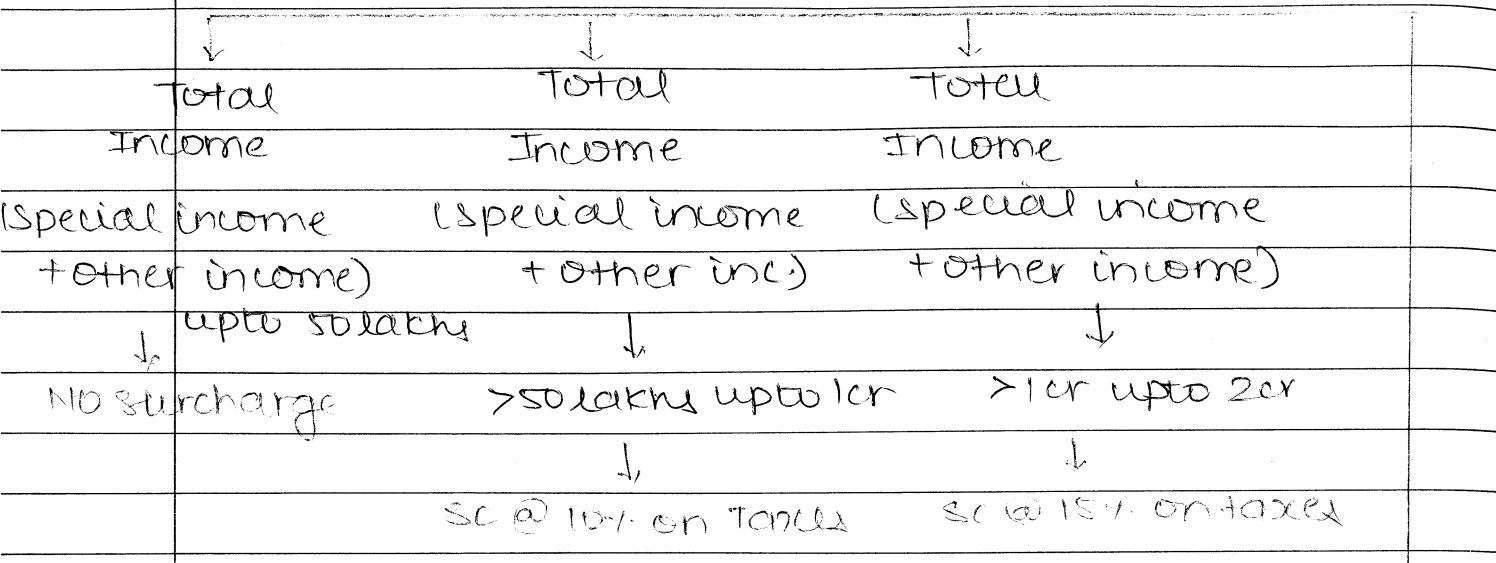 Total
Income
(special income
+ other income)
upto 50 lakhs
No surcharge
Total
Income
(special income
+ other inc.)
>50 lakhs upto 1cr
SC @ 10% on Taxes
Total
Income
(special income
+ other income)
>1cr upto 2cr
SC @ 15% on taxes